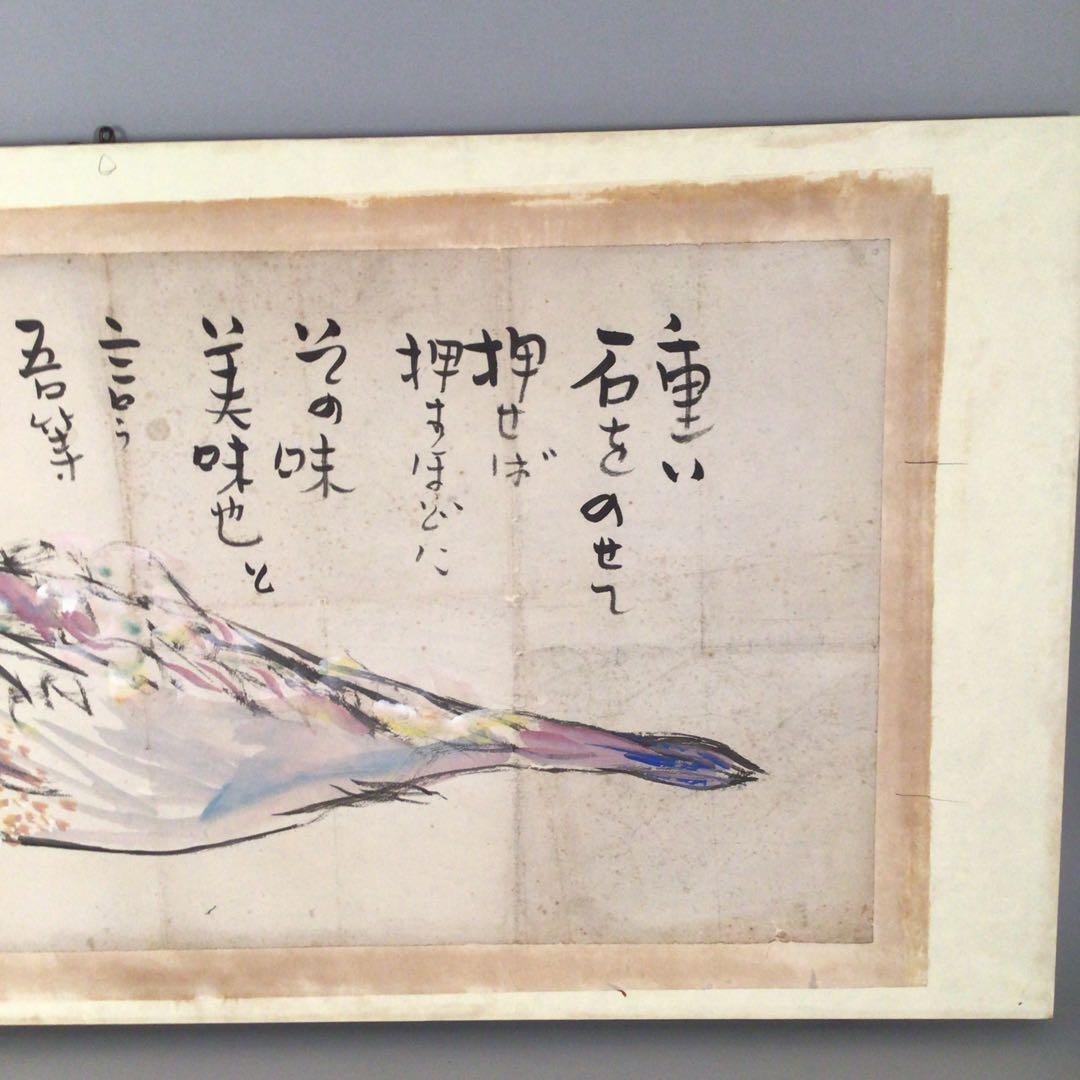 重い
石をのせて
押せば
押すほどに
その味
美味也と
言う
吾等